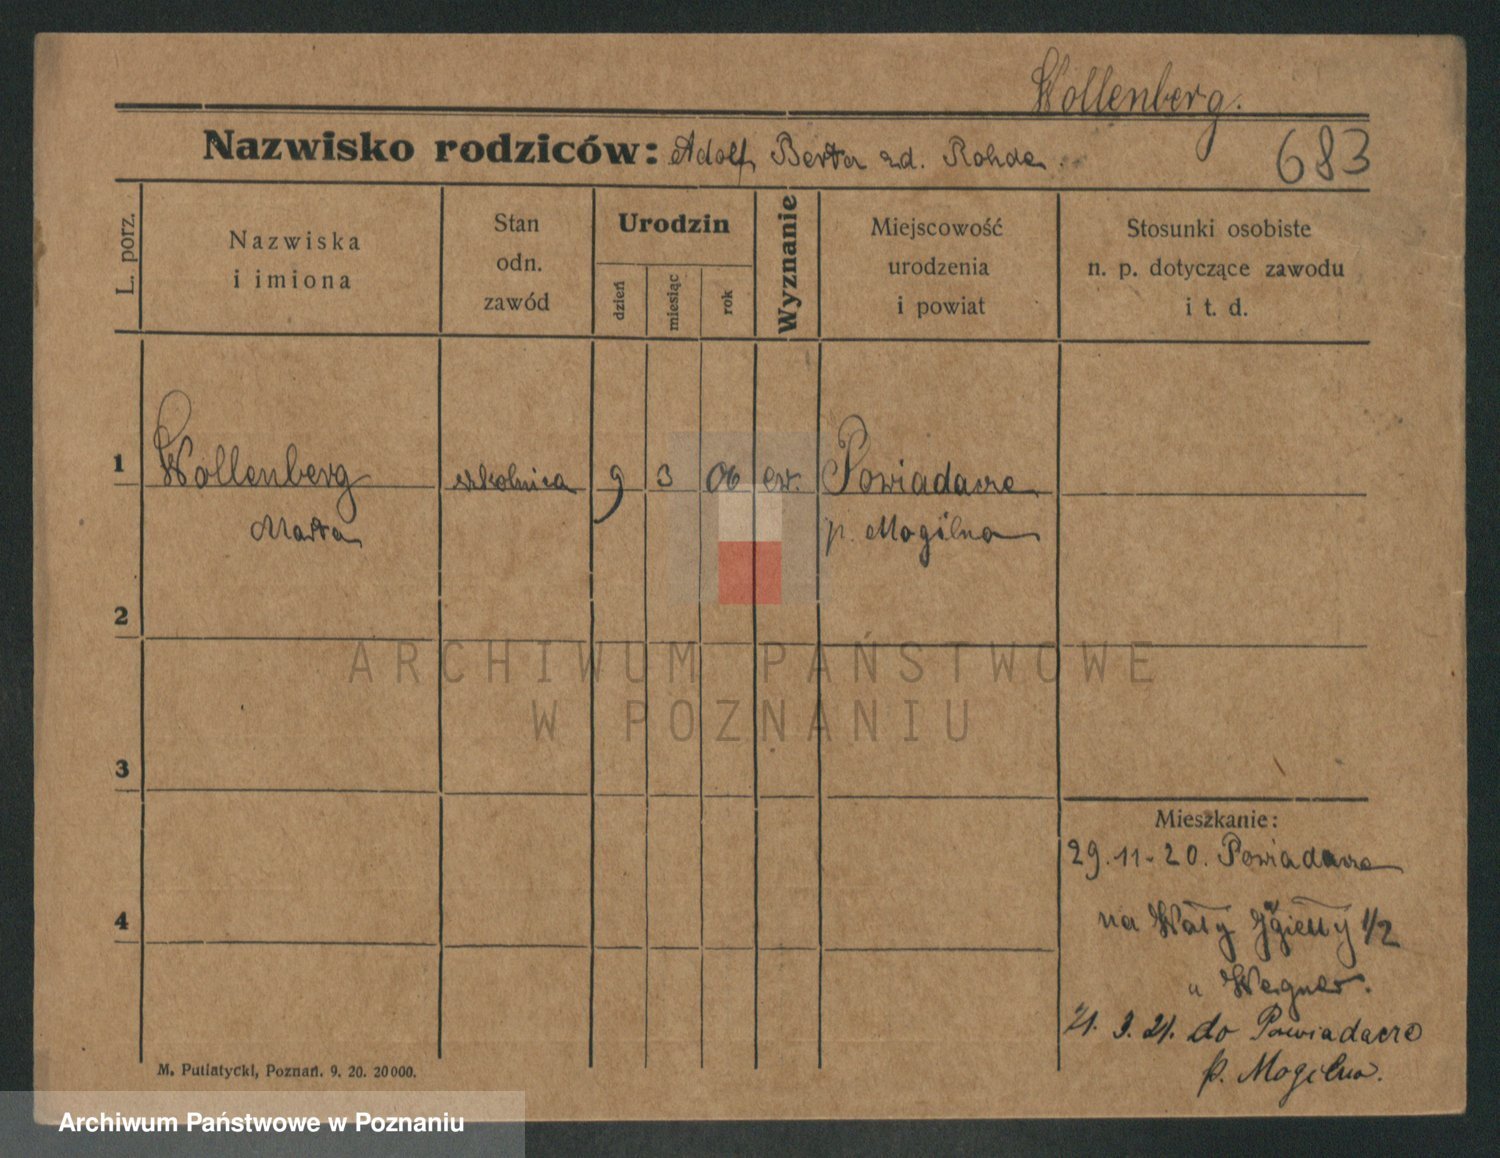 Wollenberg.
Nazwisko rodziców: Adolf Berta zd. Rohde.
683
L. porz.
Nazwiska
i imiona
Stan
odn.
zawód
Urodzin
dzień
miesiąc
rok
Wyznanie
Miejscowość
urodzenia
i powiat
Stosunki osobiste
n. p. dotyczące zawodu
i t. d.
1 Wollenberg szkolnica 9 3 06 ew. Powiadacze
Marta p. Mogilna
2
ARCHIWUM PAŃSTWOWE
W POZNANIU
3
Mieszkanie:
29.11.20. Powiadacze
4
na Wały Jagiełły 1/2
u Wegner.
21. 3. 21. do Powiadacze
p. Mogilna.
M. Putiatycki, Poznań. 9. 20. 20000.
Archiwum Państwowe w Poznaniu